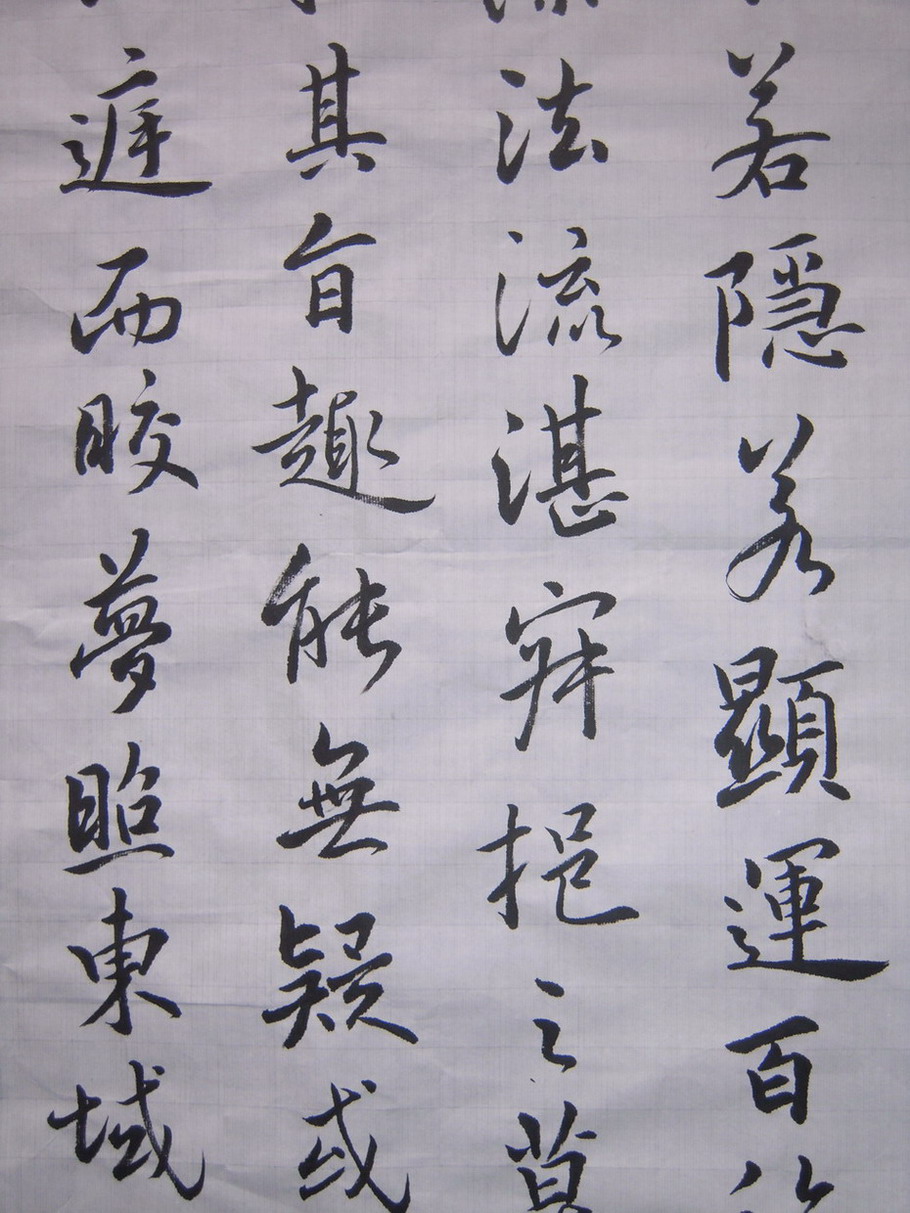 若隱若顯運百
法流湛寂挹之莫
其旨趣能無疑或
遲而皎夢照東域